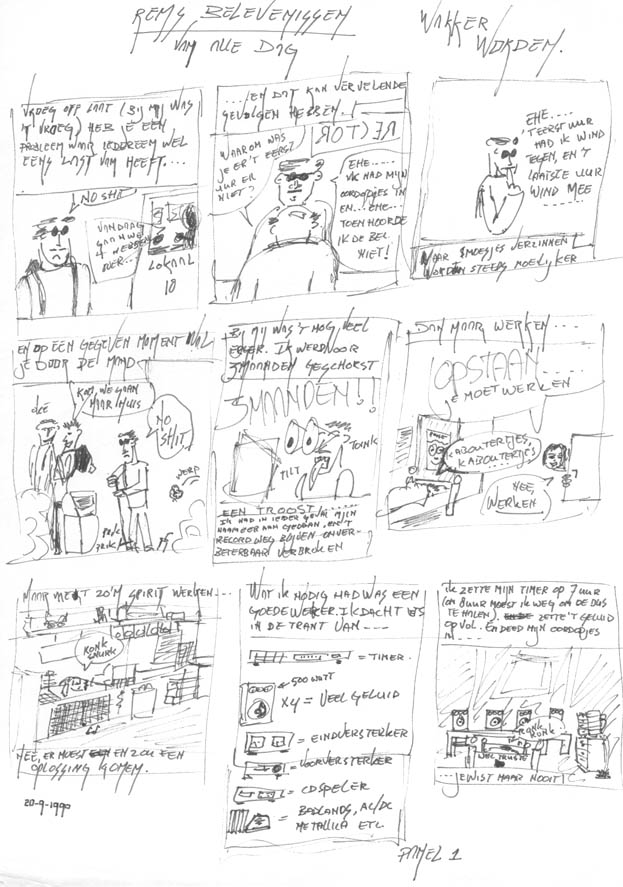 REM'S BELEVENISSEN
VAN ALLE DAG
WAKKER
WORDEN.
VROEG OFF LAAT (BIJ MIJ WAS
'T VROEG) HEB JE EEN
PROBLEEM WAAR IEDEREEN WEL
EENS LAST VAN HEEFT....
NO SHIT
VANDAAG
GAAN WE
'T HEBBEN
OVER...
LOKAAL
18
....EN DAT KAN VERVELENDE
GEVOLGEN HEBBEN..!
WAAROM WAS
JE ER 'T EERSTE
UUR ER
NIET?
EHE.....
IK HAD MIJN
OORDOPJES IN
EN....EHE...
TOEN HOORDE
IK DE BEL
NIET!
EHE....
'T EERST UUR
HAD IK WIND
TEGEN, EN 'T
LAATSTE UUR
WIND MEE
....
MAAR SMOESJES VERZINNEN
WORDEN STEEDS MOEILIJKER
EN OP EEN GEGEVEN MOMENT VAL
JE DOOR DE MAND
KOM, WE GAAN
NAAR HUIS
OKÉ
NO
SHIT.
WERP
PRIK
PRIK
BIJ MIJ WAS 'T NOG VEEL
ERGER. IK WERD VOOR
3 MAANDEN GESCHORST
3 MAANDEN!!
TOINK
TILT
EEN TROOST.....
IK HAD IN IEDER GEVAL MIJN
NAAM EER AAN GEDAAN, EN 'T
RECORD WEG BLIJVEN ONVER-
BETERBAAR VERBROKEN
DAN MAAR WERKEN....
OPSTAAN
JE MOET WERKEN
KABOUTERTJES,
KABOUTERTJES
NEE,
WERKEN
MAAR MET ZO'N SPIRIT WERKEN....
KONK
SNURK
NEE, ER MOEST EN ZOU EEN
OPLOSSING KOMEN.
20-9-1990
WAT IK NODIG HAD WAS EEN
GOEDE WEKER. IK DACHT IETS
IN DE TRANT VAN----
= TIMER.
500 WATT
XY = VEEL GELUID
= EINDVERSTERKER
= VOORVERSTERKER
= CD SPELER
= BADLANDS, AC/DC
METALLICA ETC.
IK ZETTE MIJN TIMER OP 7 UUR
(OM 8 UUR MOEST IK WEG OM DE BUS
TE HALEN). ZETTE 'T GELUID
OP VOL. EN DEED MIJN OORDOPJES
IN....
RONK
RONK
WELTRUSTE
....JE WIST MAAR NOOIT!
PANEL 1